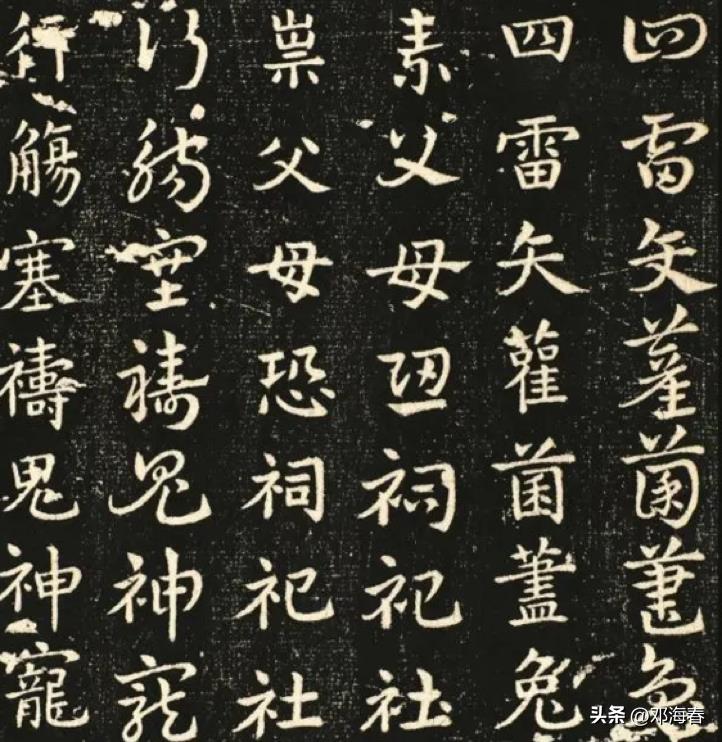 四雷矢雚菌藎兔
四雷矢雚菌藎兔
祟父母恐祠祀社
祟父母恐祠祀社
行觴塞禱鬼神寵
行觴塞禱鬼神寵
头条 @邓海春